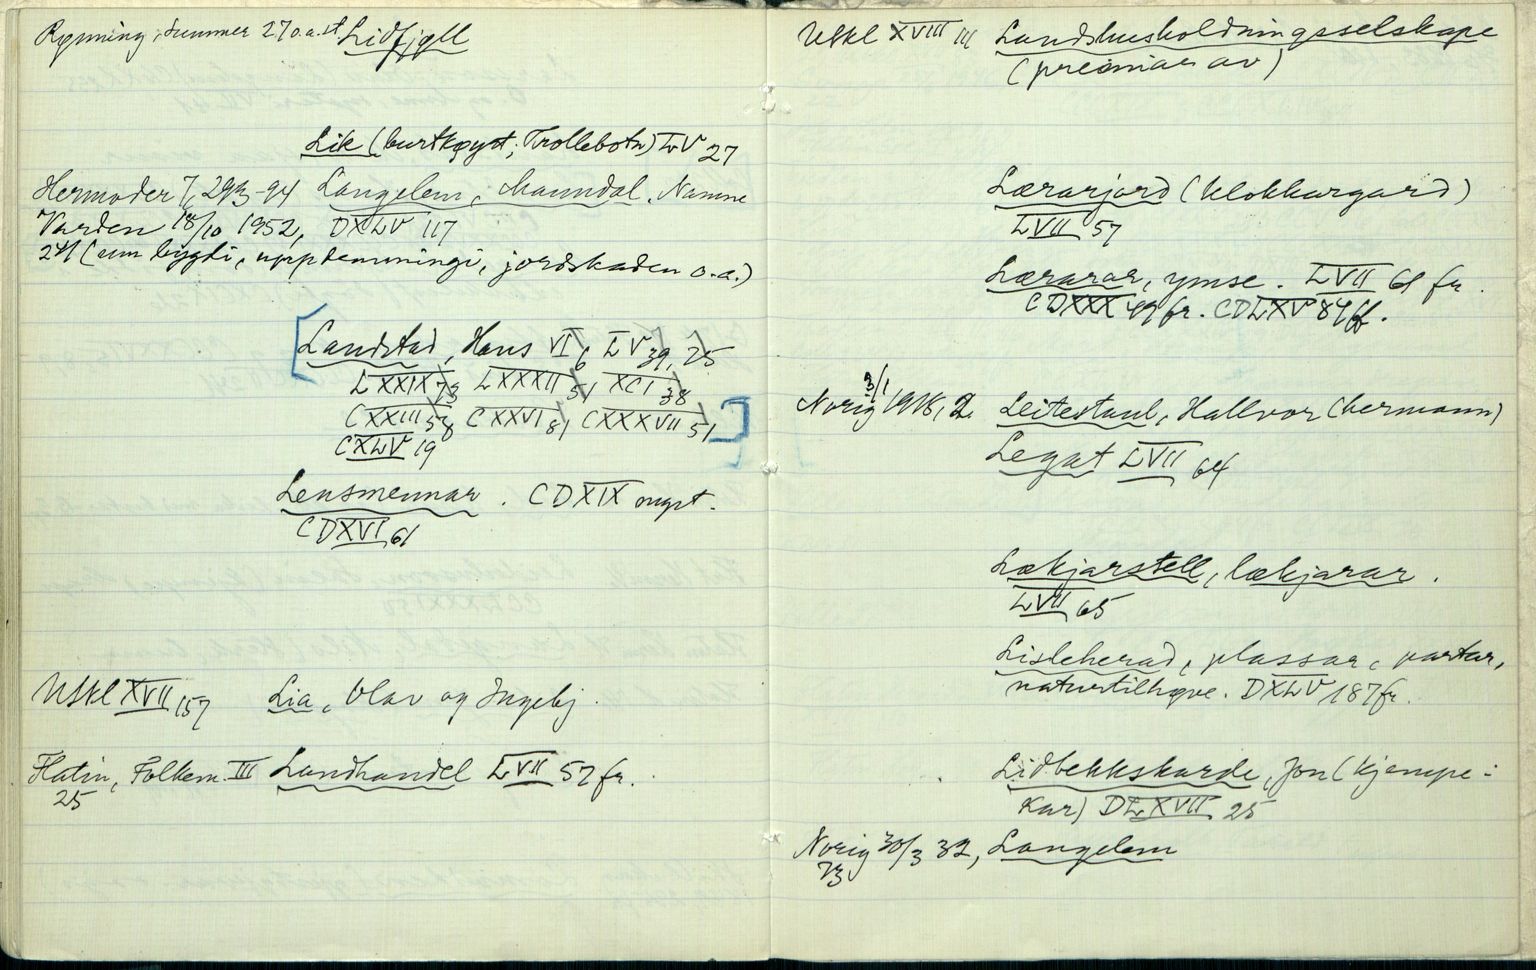 Rynning, Summer 27 o.a.st. Lidfjell
Lik (burtkøyrt; Trollebotn) LV 27
Hermoder 7/1 293-94 Langelem, Maundal. Namne
Varden 18/10 1952, DXLV 117
24 (um bygdi, uppdemmingi, jordskaden o.a.)
Landstad, Hans VI 6 LV 39, 25
LXXIX 73 LXXXII 51 XCI 38
CXXIII 58 CXXVI 81 CXXXVII 51
CXLV 19
Lensmennar. CDXIX mykt.
CDXVI 61
USkl XVII 157 Lia, Olav og Ingebj.
Flatin, Folkem. III Landhandel LVII 57 fr.
25
USkl XVIII 111 Landshusholdningsselskape
(premiar av)
Lærarjord (klokkargard)
LVII 57
Lærarar, ymse. LVII 61 fr.
CDXXX 49 fr. CDLXV 84 ff.
Norig 3/1 1916, 2. Leitestaul, Hallvor (hermann)
Legat LVII 64
Lækjarstell, lækjarar.
LVII 65
Lisleherad, plassar, partar,
naturtilhøve. DXLV 187 fr.
Lidbekkskarde, Jon (kjempe-
kar) DLXVII 25
Norig 30/3 32, Langelem
73